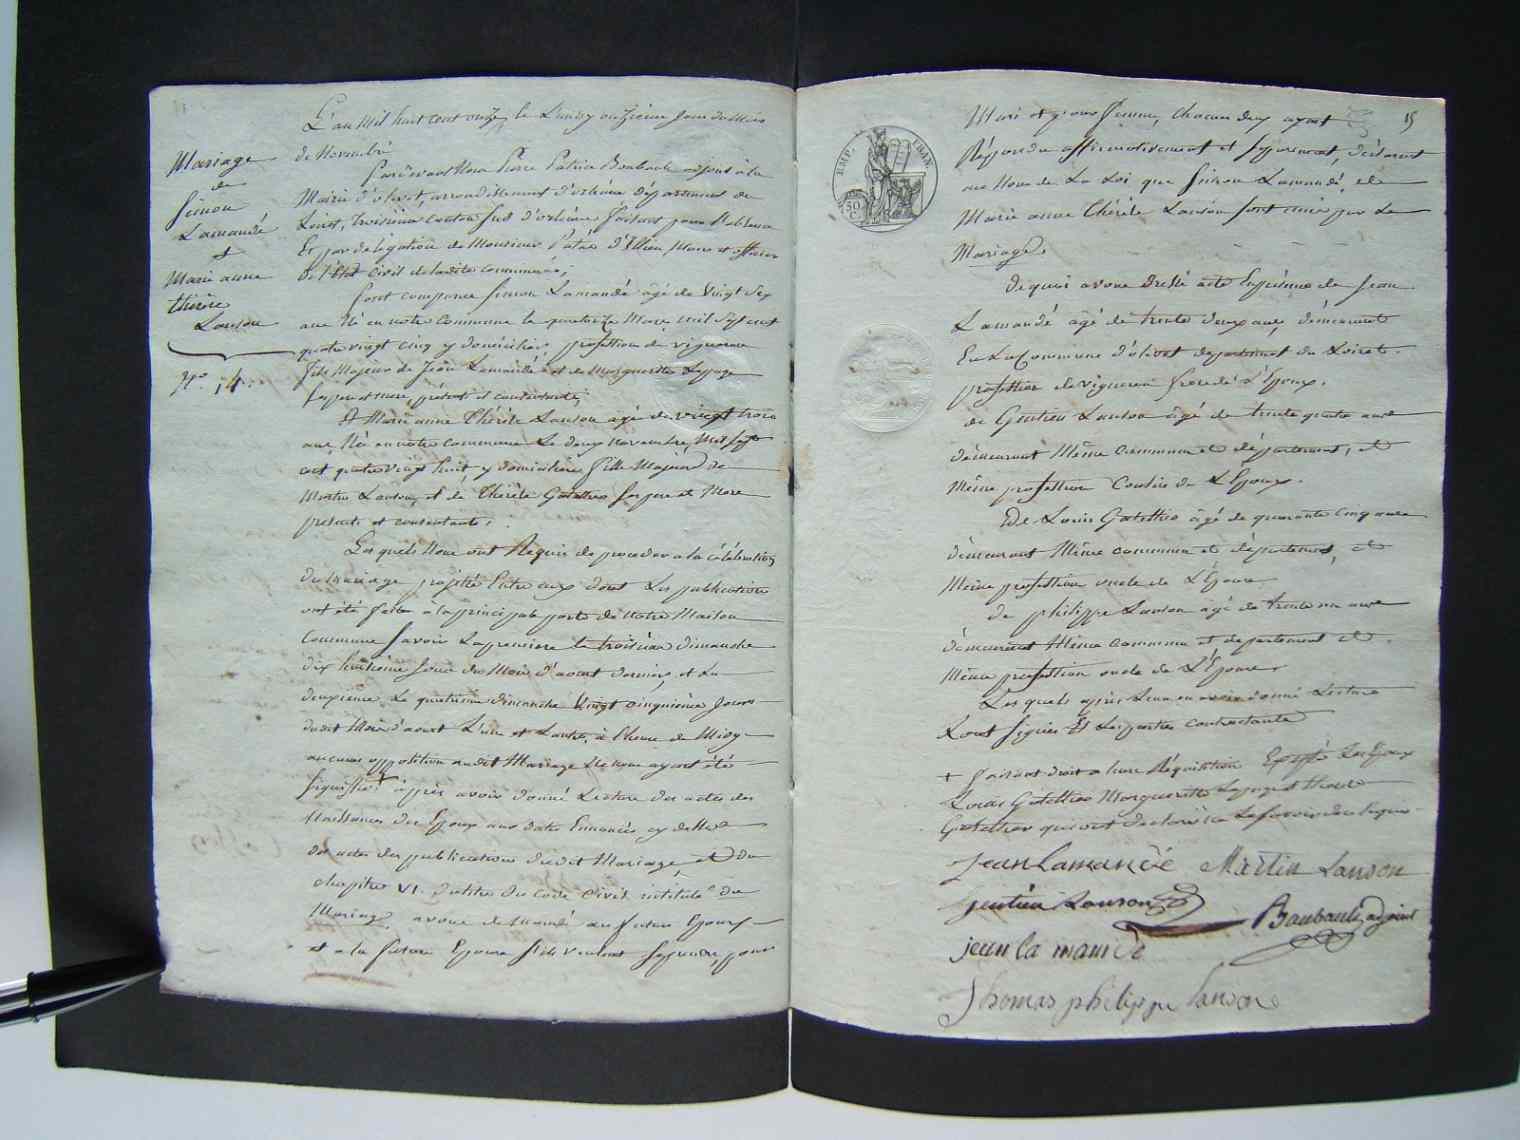 L'an Mil huit cent onze, le Lundy onzieme Jour du Mois
de Novembre
Mariage
de
Simon
Lamandé
et
Marie anne
thérèse
Lanson
N.º 14.
Pardevant Nous Pierre Patrice Baubault adjoint à la
Mairie d'olivet, arrondissement d'orléans département du
Loiret, troisieme Canton Sud d'orléans faisant pour l'absence
Et par délégation de Monsieur Maire et officier
de l'état Civil de ladite commune;
Sont comparus Simon Lamandé agé de Vingt Six
ans Né en notre Commune le Mars mil Sept cent
quatre vingt cinq y domicilié, profession de vigneron
fils Majeur de Jean Lamandé et de Marguerite Lepage
Ses pere et mere, présents et consentants;
Et Marie anne Thérèse Lanson agé de vingt trois
ans, Né en notre commune Le deux novembre, Mil Sept
cent quatre vingt huit, y domiciliée, fille Majeure de
Martin Lanson, et de Thérèse Gatellier Ses pere et Mere
présents et consentants;
Les quels Nous ont Requis de proceder a la célébration
du mariage projetté Entre eux dont Les publications
ont été faites a la principale porte de Notre Maison
Commune Savoir La premiere le troisieme dimanche
dix huitieme Jour du Mois d'aout dernier, et La
deuxieme Le quatrieme dimanche Vingt cinquieme Jour
dudit Mois d'aout L'une et L'autre, à l'heure de Midy
aucune opposition audit Mariage Ne nous ayant été
Signiffié + après avoir donné Lecture des actes de
Naissances des Epoux aux dates Enoncés cy dessus
des actes des publications dudit Mariage, et du
chapitre VI. du titre du Code Civil intitulé du
Mariage, avons demandé au futur Epoux
et a la future Epouse S'ils veulent Se prendre, pour
15
Mari et pour femme, Chacun deux ayant
Répondu affirmativement et Séparement, déclarons
au Nom de La Loi que Simon Lamandé, et
Marie anne Thérèse Lanson Sont unis par Le
Mariage.
EMP. FRANÇ.
50
C.
de quoi avons dressé acte En présence de Jean
Lamandé agé de trente deux ans, demeurant
En La Commune d'olivet departement du Loiret.
profession de vigneron frere de L'Epoux.
de Gentien Lanson agé de trente quatre ans
demeurant Même commune et département, et
Même profession Cousin de L'Epoux.
De Louis Gatellier agé de quarante cinq ans
demeurant Même commune et département, et
Même profession oncle de L'Epouse
de philippe Lanson agé de trente un ans
demeurant Même Commune et département et
Même profession oncle de L'Epouse
Les quels après Leur en avoir donné Lecture
L'ont Signés Et Les parties contractantes
+ faisant droit a leur Réquisition Excepté Les Epoux
Louis Gatellier Marguerite Lepage et Thérèse
Gatellier qui ont declaré ne Le Savoir de ce requis
jean Lamandé Martin Lanson
gentien Lanson
Baubault adjoint
jean la mandé
Thomas philippe Lanson